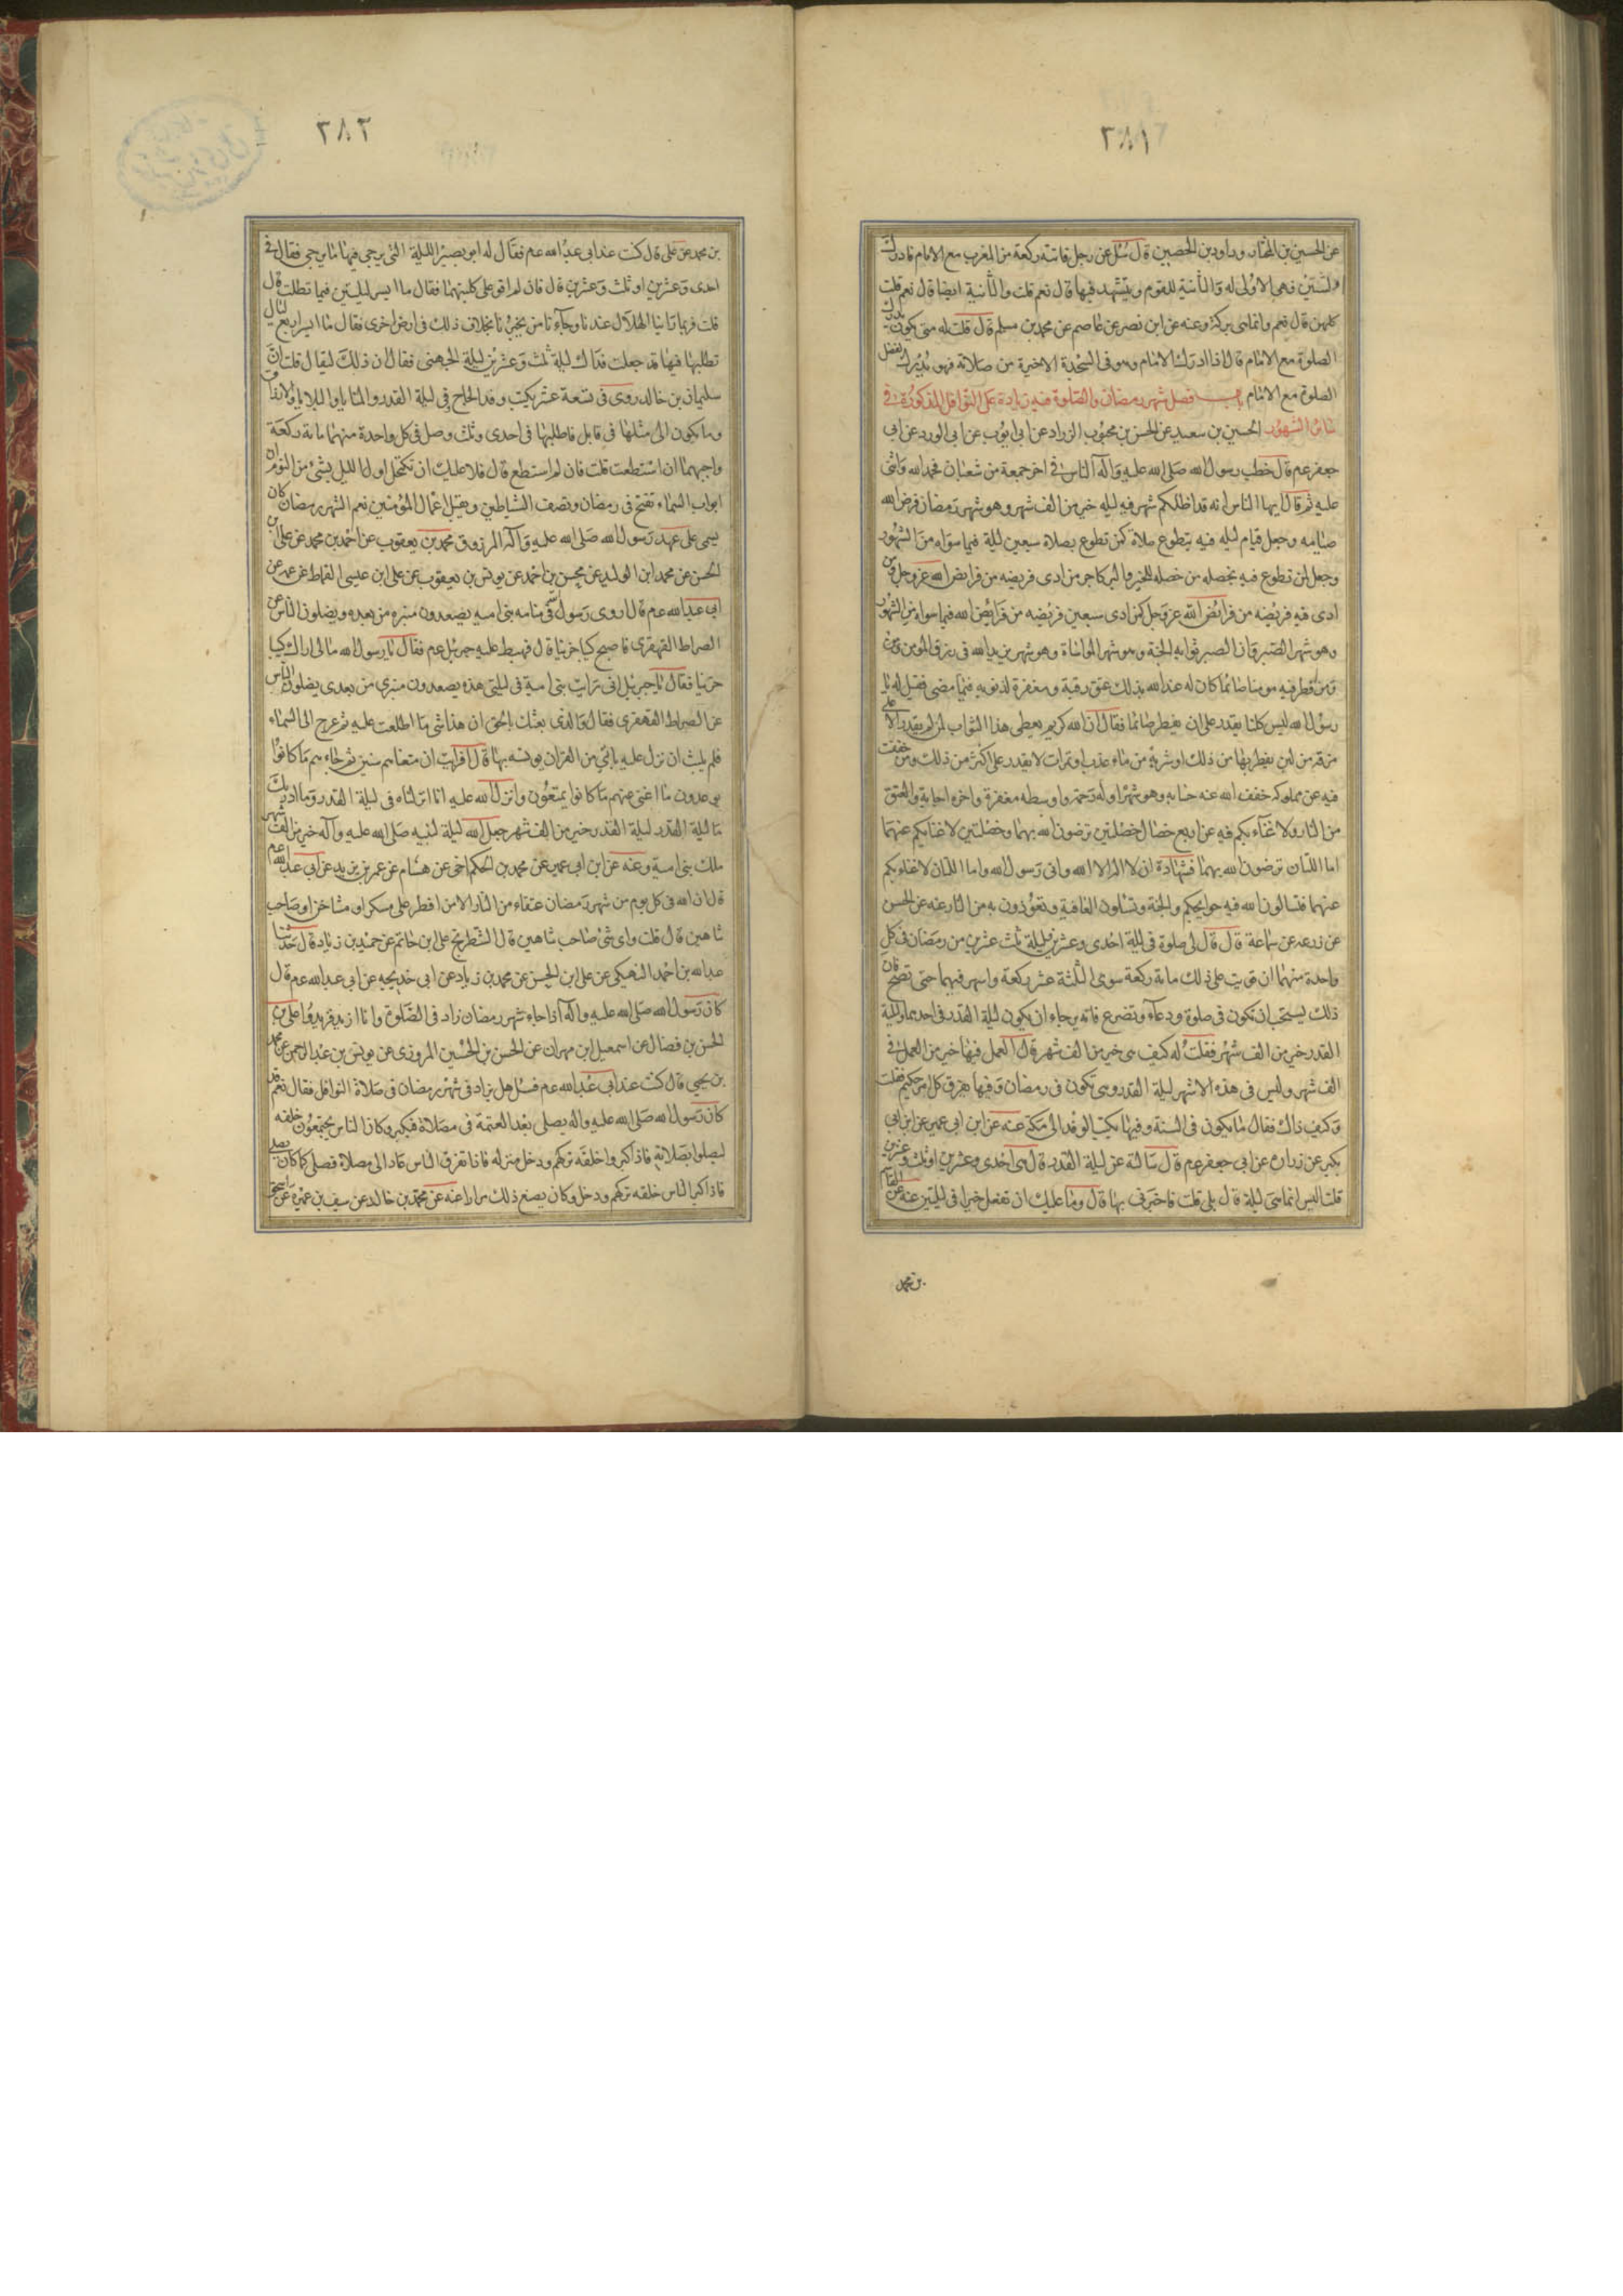 ٣٨١
عن الحسين بن المختار وداود بن الحصين قال سئل عن رجل فاتته ركعة من المغرب مع الامام فادرك
الثنتين فهى الاولى له والثانية للقوم ويتشهد فيها قال نعم قلت والثانية ايضا قال نعم قلت
كلهن قال نعم وانما هى بركة وعنه عن ابن نصر عن عاصم عن محمد بن مسلم قال قلت له متى يكون يدرك
الصلوة مع الامام قال اذا ادرك الامام وهو فى السجدة الاخيرة من صلاته فهو مدرك لفضل
الصلوة مع الامام باب فضل شهر رمضان والصلوة فيه زيادة على النوافل المذكورة فى
سائر الشهور الحسين بن سعيد عن الحسن بن محبوب الزراد عن ابى ايوب عن ابى الورد عن ابى
جعفر عم قال خطب رسول الله صلى الله عليه وآله الناس فى اخر جمعة من شعبان فحمد الله واثنى
عليه ثم قال ايها الناس انه قد اظلكم شهر فيه ليله خير من الف شهر وهو شهر رمضان فرض الله
صيامه وجعل قيام ليله فيه بتطوع صلاة كمن تطوع بصلاة سبعين ليلة فيما سواه من الشهور
وجعل لمن تطوع فيه بخصله من خصله للخير والبر كاجر من ادى فريضه من فرايض الله عز وجل ومن
ادى فيه فريضه من فرايض الله عز وجل كمن ادى سبعين فريضه من فرايض الله فيما سواه من الشهور
وهو شهر الصبر فان الصبر ثوابه الجنة وهو شهر المواساة وهو شهر يزيد الله فى رزق المومن ومن
فطر فيه مومنا صائما كان له عند الله بذلك عتق رقبة ومغفرة لذنوبه فيما مضى فقيل له يا
رسول الله ليس كلنا يقدر على ان يفطر صائما فقال ان الله كريم يعطى هذا الثواب لمن لم يقدر الا على
مذقة من لبن يفطر بها من ذلك او شربة من ماء عذب او تمرات لا يقدر على اكثر من ذلك ومن خفف
فيه عن مملوكه خفف الله عنه حسابه وهو شهر اوله رحمة واوسطه مغفرة واخره اجابة والعتق
من النار ولا غناء بكم فيه عن اربع خصال خصلتين ترضون الله بهما وخصلتين لا غنا بكم عنهما
اما اللتان ترضون الله بهما فشهادة ان لا اله الا الله وانى رسول الله واما اللتان لا غناء بكم
عنهما فتسالون الله فيه حوايجكم والجنة وتسئلون العافية وتعوذون به من النار عنه عن الحسن
عن زرعه عن سماعة قال قال لى صلوة فى ليلة احدى وعشرين وليلة ثلث عشرين من رمضان فى كل
واحدة منهما ان قويت على ذلك مائة ركعة سوى الثلثة عشر ركعة واسهر فيهما حتى تصبح فان
ذلك يستحب ان تكون فى صلوة ودعاء وتضرع فانه يرجاء ان يكون ليلة القدر فى احدهما وليلة
القدر خير من الف شهر فقلت له كيف هى خير من الف شهر قال العمل فيها خير من العمل فى
الف شهر وليس فى هذه الاشهر ليلة القدر وهى تكون فى رمضان وفيها يفرق كل امر حكيم فقلت
وكيف ذاك فقال ما يكون فى السنة وفيها يكتب الوفد الى مكة عنه عن ابن ابى عمير عن ابن ابى
بكير عن زرارة عن ابى جعفر عم قال سالته عن ليلة القدر قال هى احدى وعشرين او ثلث وعشرين
قلت اليس انما هى ليلة قال بلى قلت فاخبرنى بها قال وما عليك ان تفعل خيرا فى ليلتين عنه عن القاسم
بن محمد
٣٨٢
بن محمد عن على قال كنت عند ابى عبد الله عم فقال له ابو بصير الليلة التى يرجى فيها ما يرجى فقال فى
احدى وعشرين او ثلث وعشرين قال فان لم اقو على كلتيهما فقال ما ايسر ليلتين فيما تطلب قال
قلت فربما راينا الهلال عندنا وجاءنا من يخبرنا بخلاف ذلك فى ارض اخرى فقال ما ايسر اربع ليال
تطلبها فيها قلت جعلت فداك ليلة ثلث وعشرين ليلة الجهنى فقال ان ذلك ليقال قلت ان
سليمان بن خالد روى فى تسعة عشر يكتب وفد الحاج فى ليلة القدر والمنايا والبلايا والارزاق
وما يكون الى مثلها فى قابل فاطلبها فى احدى وثلث وصل فى كل واحدة منهما مائة ركعة
واحيهما ان استطعت قلت فان لم استطع قال فلا عليك ان تكتحل اول الليل بشئ من النوم ان
ابواب السماء تفتح فى رمضان وتصفد الشياطين ويقبل اعمال المؤمنين نعم الشهر رمضان كان
يسمى على عهد رسول الله صلى الله عليه وآله المرزوق محمد بن يعقوب عن احمد بن محمد عن على بن
الحسن عن محمد ابن الوليد عن محسن بن احمد عن يونس بن يعقوب عن على ابن عيسى القماط عن عمه عن
ابى عبد الله عم قال روى رسول الله فى منامه بنى اميه يصعدون منبره من بعده ويضلون الناس عن
الصراط القهقرى فاصبح كئيبا حزينا قال فهبط عليه جبرئيل عم فقال يا رسول الله مالى اراك كئيبا
حزينا فقال يا جبرئيل انى رايت بنى امية فى ليلتى هذه يصعدون منبرى من بعدى يضلون الناس
عن الصراط القهقرى فقال والذى بعثك بالحق ان هذا شئ ما اطلعت عليه ثم عرج الى السماء
فلم يلبث ان نزل عليه بآى من القرآن يونسه بها قال افرايت ان متعناهم سنين ثم جاءهم ما كانوا
يوعدون ما اغنى عنهم ما كانوا يمتعون وانزل الله عليه انا انزلناه فى ليلة القدر وما ادريك
ما ليلة القدر ليلة القدر خير من الف شهر جعل الله ليلة لنبيه صلى الله عليه وآله خير من الف شهر
ملك بنى امية وعنه عن ابن ابى عمير عن محمد بن الحكم اخى عن هشام عن عمر بن يزيد عن ابى عبد الله عم
قال ان الله فى كل يوم من شهر رمضان عتقاء من النار الا من افطر على مسكر او مشاخن او صاحب
شاهين قال قلت واى شئ صاحب شاهين قال الشطرنج على ابن حاتم عن حميد بن زياد قال حدثنا
عبد الله بن احمد النهيكى عن على ابن الحسن عن محمد بن زياد عن ابى خديجه عن ابى عبد الله عم قال
كان رسول الله صلى الله عليه وآله اذا جاء شهر رمضان زاد فى الصلوة وانا ازيد فزيدوا على بن
الحسن بن فضال عن اسمعيل ابن مهران عن الحسن بن الحسين المروزى عن يونس بن عبد الرحمن عن محمد
بن يحيى قال كنت عند ابى عبد الله عم فسئل هل يزاد فى شهر رمضان فى صلاة النوافل فقال نعم قد
كان رسول الله صلى الله عليه واله يصلى بعد العتمة فى مصلاه فيكبر وكان الناس يجتمعون خلفه
ليصلوا بصلاته فاذا كبروا خلفه تركهم ودخل منزله فاذا تفرق الناس عاد الى مصلاه فصلى كما كان يصلى
فاذا كبر الناس خلفه تركهم ودخل وكان يصنع ذلك مرارا عنه عن محمد بن خالد عن سيف بن عميرة عن اسحق